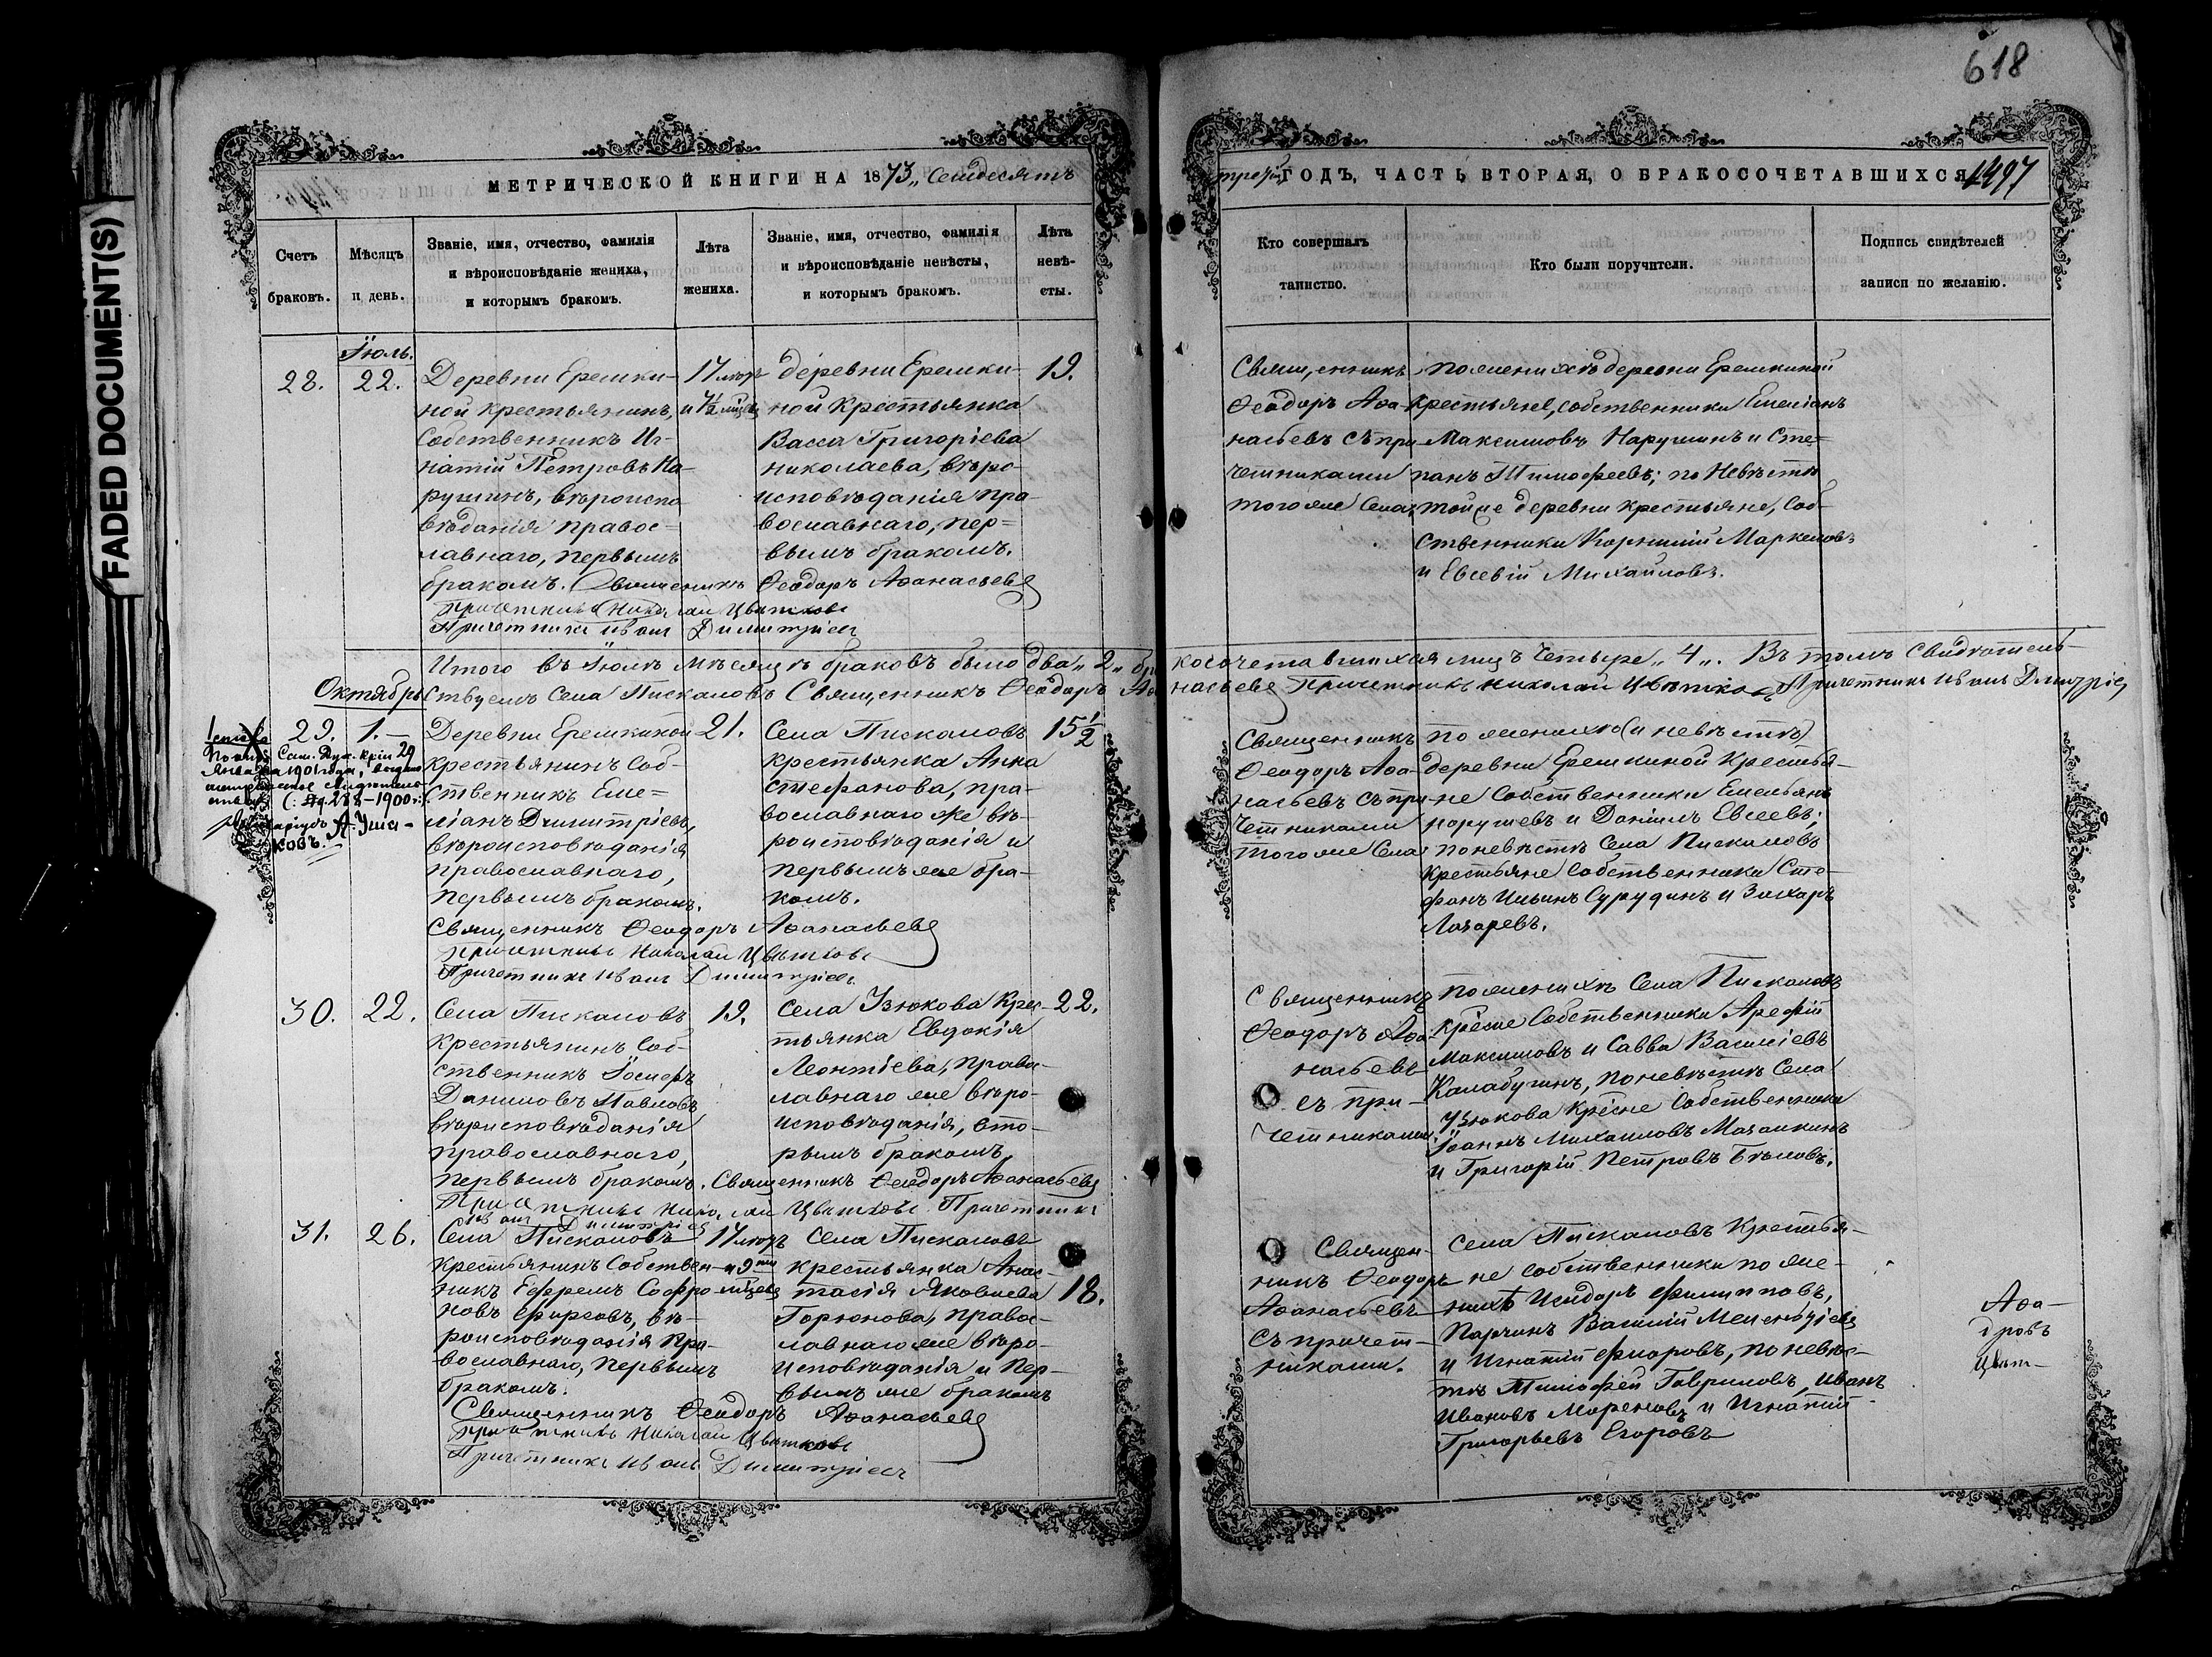 618
FADED DOCUMENT(S)
МЕТРИЧЕСКОЙ КНИГИ НА 1873,, семьдесятъ
третій ГОДЪ, ЧАСТЬ ВТОРАЯ, О БРАКОСОЧЕТАВШИХСЯ
Счетъ браковъ.
Мѣсяцъ и день.
Званіе, имя, отчество, фамилія
и вѣроисповѣданіе жениха,
и которымъ бракомъ.
Лѣта жениха.
Званіе, имя, отчество, фамилія
и вѣроисповѣданіе невѣсты,
и которымъ бракомъ.
Лѣта невѣ-
сты.
Кто совершалъ
таинство.
Кто были поручители.
Подпись свидѣтелей
записи по желанію.
Іюль.
28.
22.
Деревни Еремки-
ной крестьянинъ,
Собственникъ Иг-
натій Петровъ На-
рушинъ, вѣроиспо-
вѣданія правос-
лавнаго, первымъ
бракомъ. Священникъ Ѳеодоръ Аѳанасьевъ
Причетникъ Николай Цвѣтковъ
Причетникъ Иванъ Димитріевъ
17 лѣтъ
и 7½ мѣсяцевъ
деревни Еремки-
ной крестьянка
Васса Григоріева
Николаева, вѣро-
исповѣданія пра-
вославнаго, пер-
вымъ бракомъ.
19.
Священникъ
Ѳеодоръ Аѳа-
насьевъ съ при-
четниками
того же Села
по женихѣ деревни Еремкиной
крестьяне, собственники Емеліанъ
Максимовъ Нарушинъ и Сте-
панъ Тимофеевъ; по Невѣстѣ
той же деревни крестьяне, Соб-
ственники Корнилій Маркеловъ
и Евсевій Михайловъ.
Итого въ Іюлѣ мѣсяцѣ браковъ было два „2„ бракосочетавшихся лицъ Четыре „4„. Въ томъ Свидѣтель-
ствуемъ Села Пискаловъ Священникъ Ѳеодоръ Аѳанасьевъ Причетникъ Николай Цвѣтковъ Причетникъ Иванъ Дмитріевъ
Октябрь
29.
1.
Сам. Дух.
Января 1901 года, выдано
288-1900 г.
А. Уша-
ковъ.
Деревни Еремкиной
крестьянинъ Соб-
ственникъ Еме-
ліанъ Димитріевъ,
вѣроисповѣданія
православнаго,
первымъ бракомъ.
Священникъ Ѳеодоръ Аѳанасьевъ
Причетникъ Николай Цвѣтковъ
Причетникъ Иванъ Димитріевъ
21.
Села Пискаловъ
крестьянка Анна
Стефанова, пра-
вославнаго же вѣ-
роисповѣданія и
первымъ же бра-
комъ.
15½
Священникъ
Ѳеодоръ Аѳа-
насьевъ съ при-
четниками
того же Села
по женихѣ (и невѣстѣ)
деревни Еремкиной Крестья-
не Собственники Емельянъ
Нарушевъ и Даніилъ Евсеевъ;
по невѣстѣ Села Пискаловъ
крестьяне Собственники Сте-
фанъ Ильинъ Сурудинъ и Захаръ
Лазаревъ.
30.
22.
Села Пискаловъ
крестьянинъ Соб-
ственникъ Іосифъ
Даниловъ Павловъ
вѣроисповѣданія
православнаго,
первымъ бракомъ. Священникъ Ѳеодоръ Аѳанасьевъ
Причетникъ Николай Цвѣтковъ Причетникъ
Иванъ Димитріевъ
19.
Села Узюкова Крес-
тьянка Евдокія
Леонтіева, Право-
лавнаго же вѣро-
исповѣданія, вто-
рымъ бракомъ.
22.
Священникъ
Ѳеодоръ Аѳа-
насьевъ
съ при-
четниками
по женихѣ Села Пискаловъ
Собственники Арефій
Максимовъ и Савва Василіевъ
Калабугинъ, по невѣстѣ Села
Узюкова Собственники
Іоаннъ Михаиловъ
и Григорій Петровъ Бѣловъ.
31.
26.
Села Пискаловъ
крестьянинъ Собствен-
никъ Ефремъ Софро-
новъ Фирсовъ, вѣ-
роисповѣданія Пра-
вославнаго, первымъ
бракомъ.
Священникъ Ѳеодоръ Аѳанасьевъ
Причетникъ Николай Цвѣтковъ
Причетникъ Иванъ Димитріевъ
17 лѣтъ
и 9ти
мѣсяцевъ
Села Пискаловъ
крестьянка Анас-
тасія Яковлева
Горюнова, правос-
лавнаго же вѣро-
исповѣданія и Пер-
вымъ же бракомъ
18.
Священ-
никъ Ѳеодоръ
Аѳанасьевъ
съ причет-
никами.
Села Пискаловъ Крестья-
не собственники по же-
нихѣ Исидоръ Филипповъ,
Парчинъ Василій
и Игнатій Флоровъ, по невѣс-
тѣ Тимофей Гавриловъ, Иванъ
Ивановъ Мореновъ и Игнатій
Григорьевъ Егоровъ